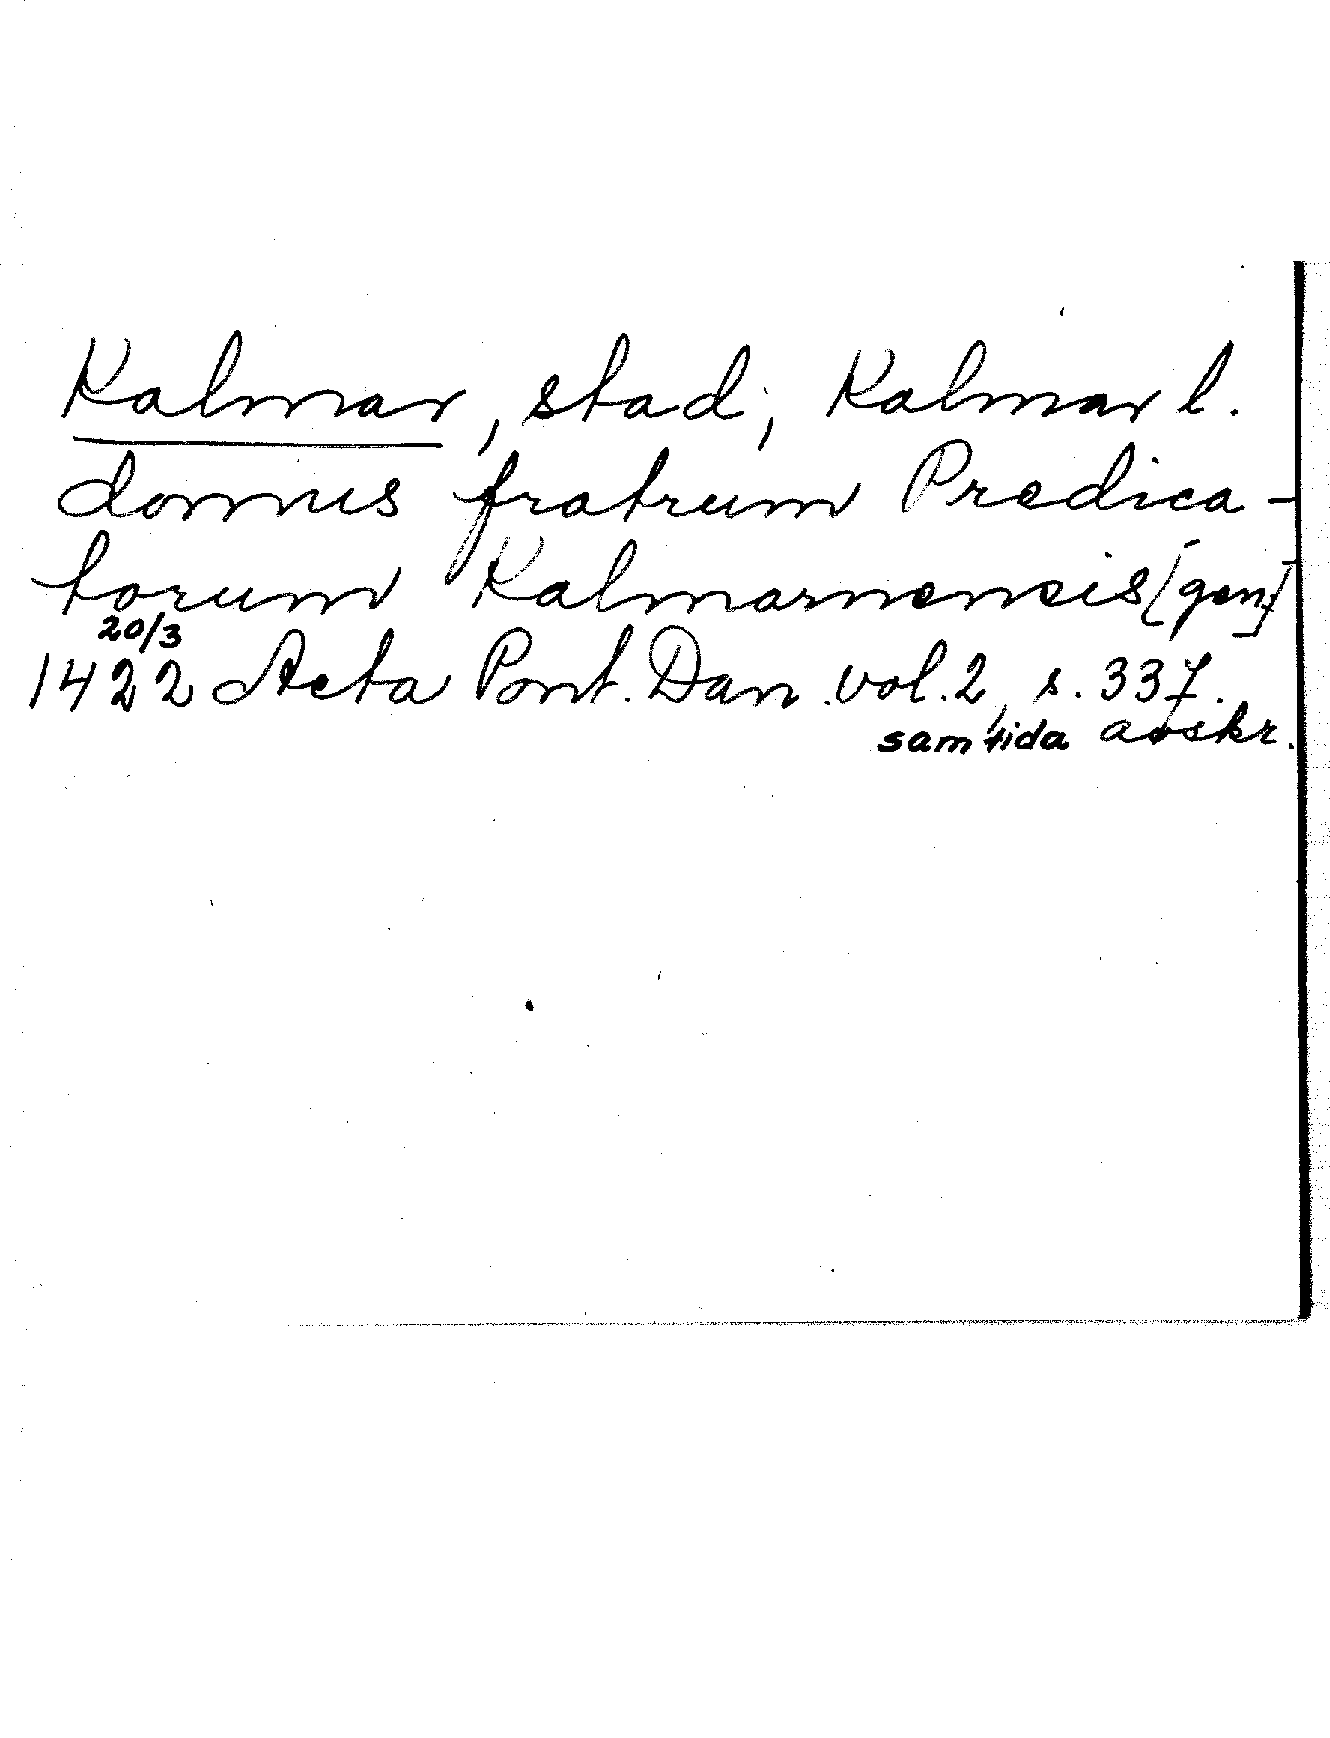 Kalmar, stad, Kalmar l.
domus fratrum Predica-
torum Kalmarnensis [gen]
20/3
1422 Acta Pont. Dan. vol. 2, s. 337.
samtida avskr.